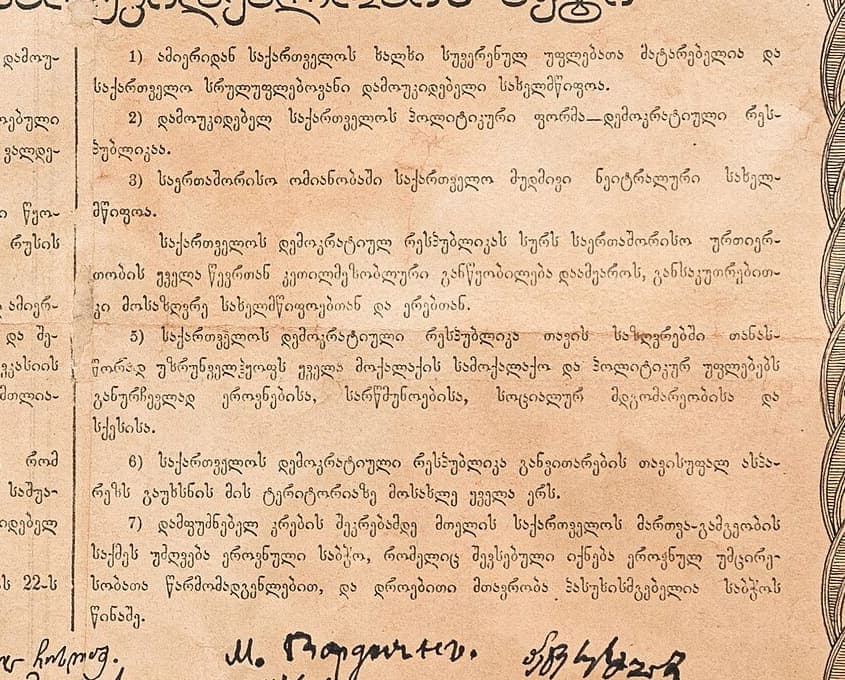 დამოუ-
ოებული
ვალდე-
ი წყო-
რუსის
ამიერ-
და შე-
კასიის
მთლია-
რომ
საშუა-
იდებელ
ს 22-ს
1) ამიერიდან საქართველოს ხალხი სუვერენულ უფლებათა მატარებელია და
საქართველო სრულუფლებოვანი დამოუკიდებელი სახელმწიფოა.
2) დამოუკიდებელ საქართველოს პოლიტიკური ფორმა—დემოკრატიული რეს-
პუბლიკაა.
3) საერთაშორისო ომიანობაში საქართველო მუდმივი ნეიტრალური სახელ-
მწიფოა.
საქართველოს დემოკრატიულ რესპუბლიკას სურს საერთაშორისო ურთიერ-
თობის ყველა წევრთან კეთილმეზობლური განწყობილება დაამყაროს, განსაკუთრებით-
კი მოსაზღვრე სახელმწიფოებთან და ერებთან.
5) საქართველოს დემოკრატიული რესპუბლიკა თავის საზღვრებში თანას-
წორად უზრუნველჰყოფს ყველა მოქალაქის სამოქალაქო და პოლიტიკურ უფლებებს
განურჩევლად ეროვნებისა, სარწმუნოებისა, სოციალურ მდგომარეობისა და
სქესისა.
6) საქართველოს დემოკრატიული რესპუბლიკა განვითარების თავისუფალ ასპა-
რეზს გაუხსნის მის ტერიტორიაზე მოსახლე ყველა ერს.
7) დამფუძნებელ კრების შეკრებამდე მთელის საქართველოს მართვა-გამგეობის
საქმეს უძღვება ეროვნული საბჭო, რომელიც შევსებული იქნება ეროვნულ უმცირე-
სობათა წარმომადგენლებით, და დროებითი მთავრობა პასუხისმგებელია საბჭოს
წინაშე.